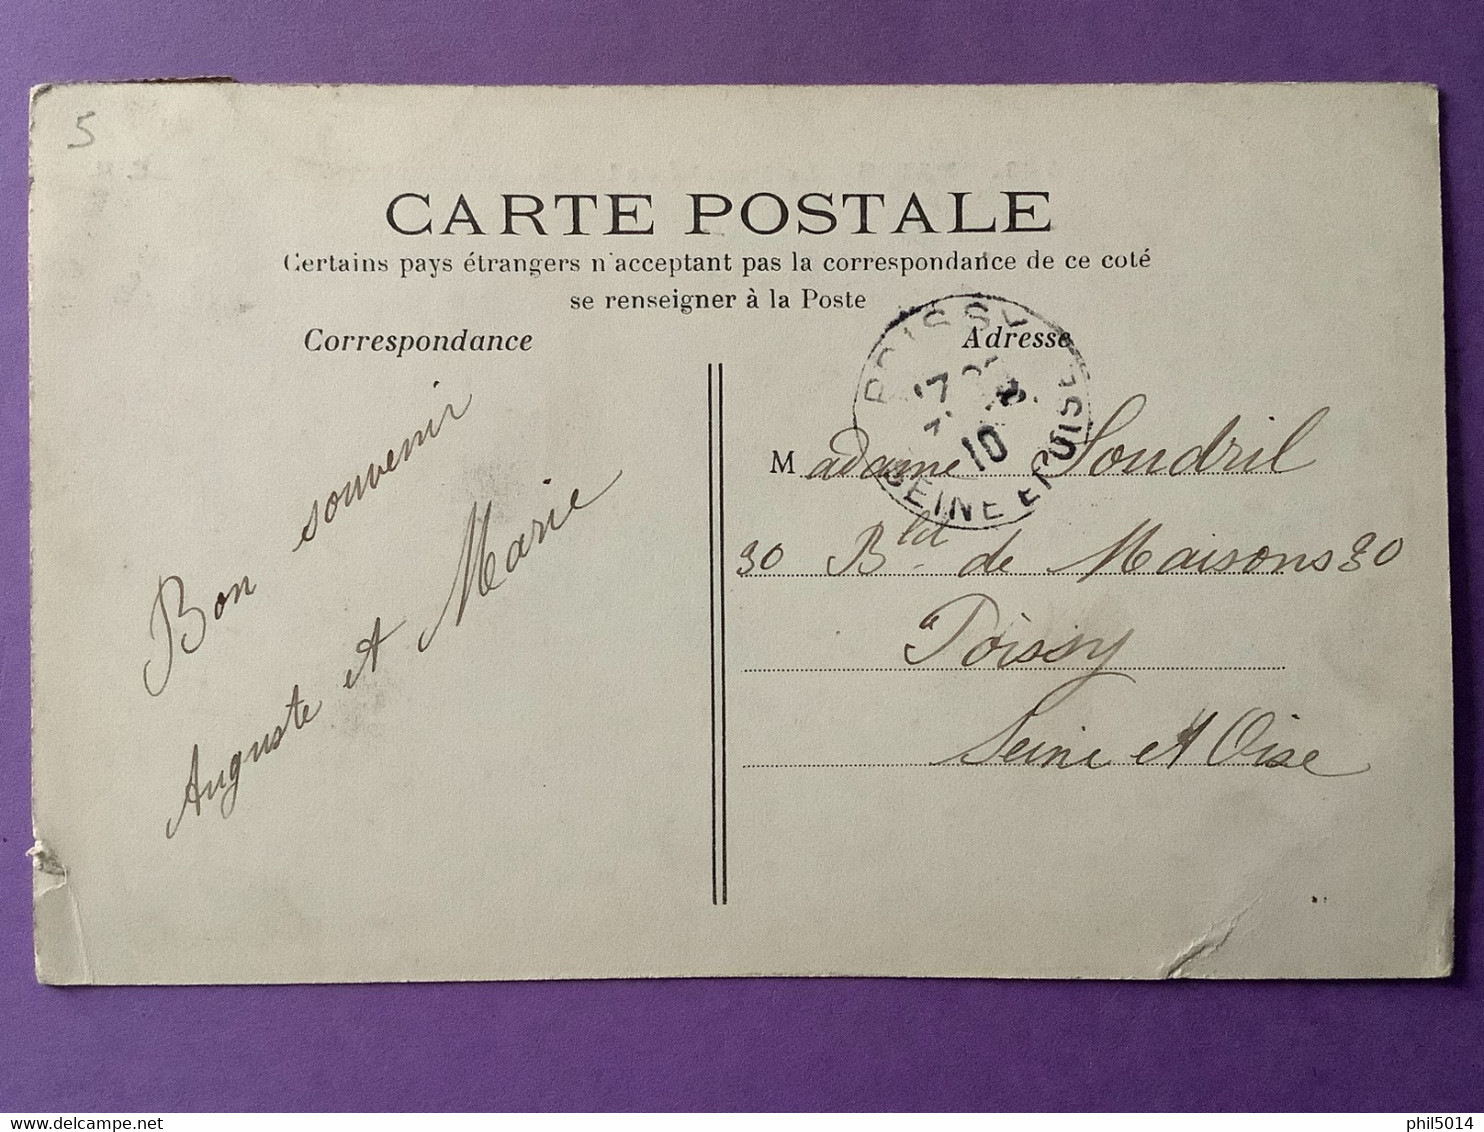 5
CARTE POSTALE
Certains pays étrangers n'acceptant pas la correspondance de ce coté
se renseigner à la Poste
Correspondance
Adresse
Bon souvenir
Auguste et Marie
POISSY
10
SEINE ET OISE
Madame Soudril
30 Bld de Maisons 30
a Poissy
Seine et Oise
delcampe.net
phil5014